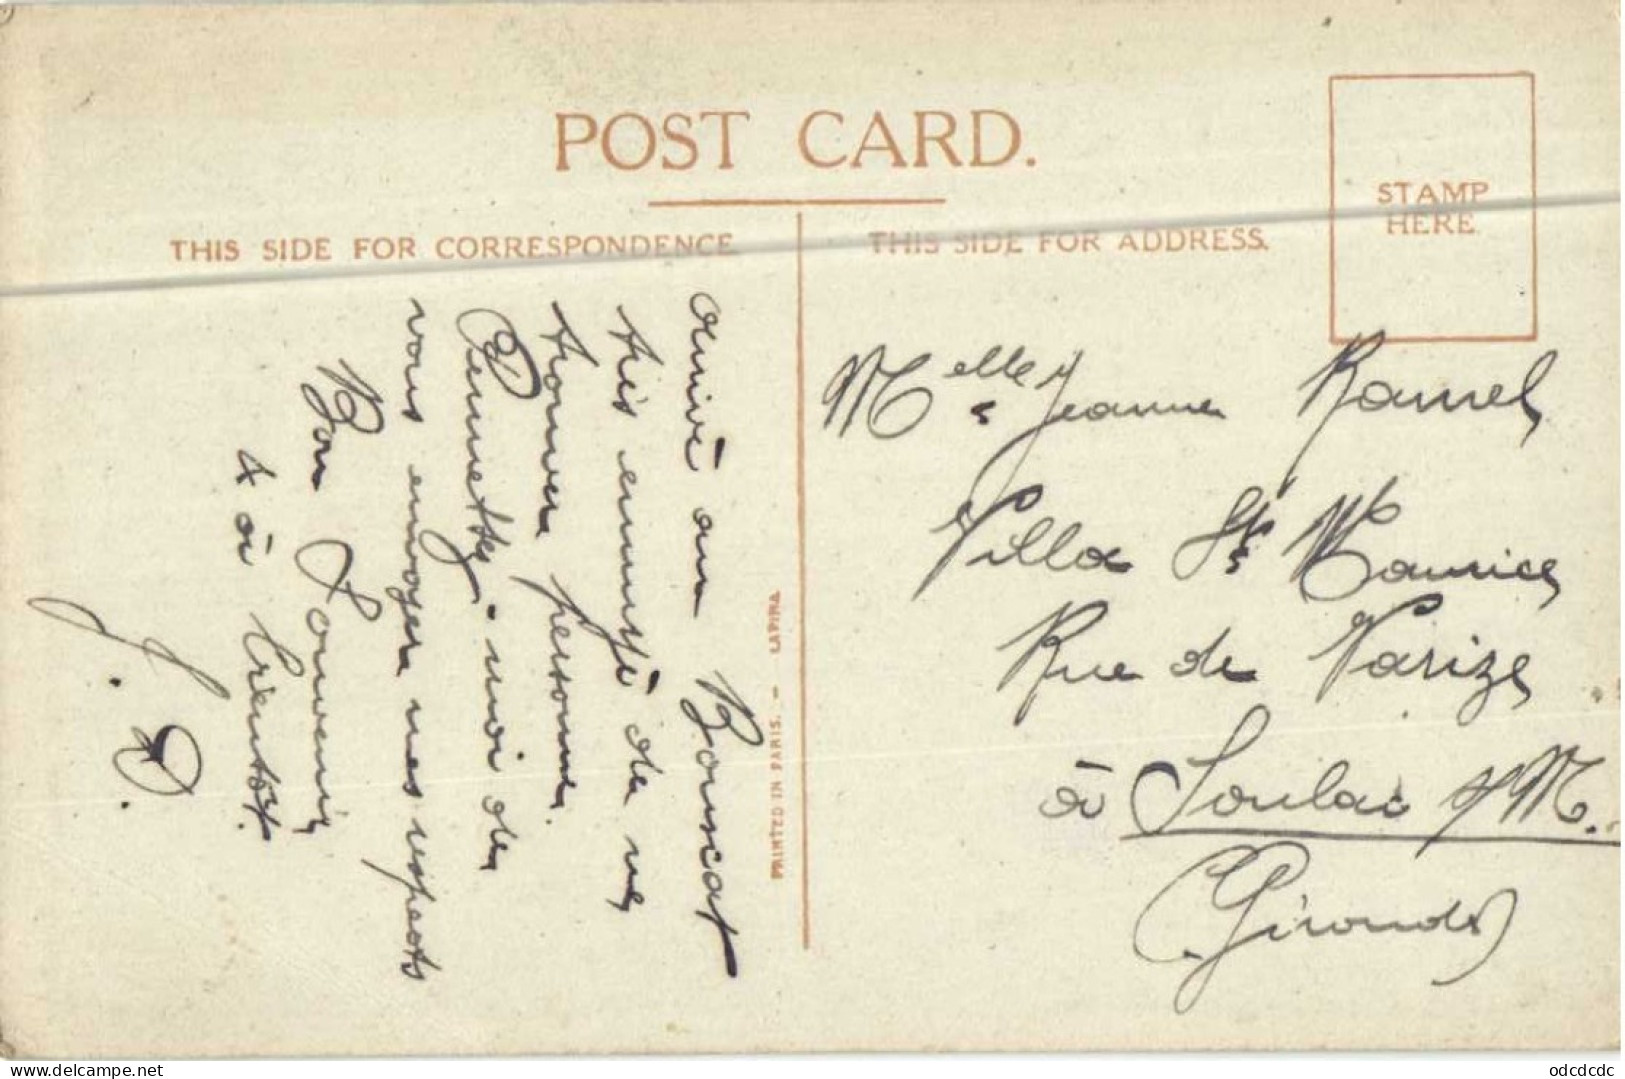 POST CARD.
STAMP
HERE
THIS SIDE FOR CORRESPONDENCE
THIS SIDE FOR ADDRESS.
Arrivé au Bouscat
très ennuyé de ne
trouver personne.
Permettez-moi de
vous envoyer mes respects
Bon Souvenir
& à bientôt.
J. D.
PRINTED IN PARIS. – LAPINA
Melle Jeanne Ramel
Villa St Maurice
Rue de Varize
à Soulac s/M.
(Gironde)
delcampe.net
odcdcdc